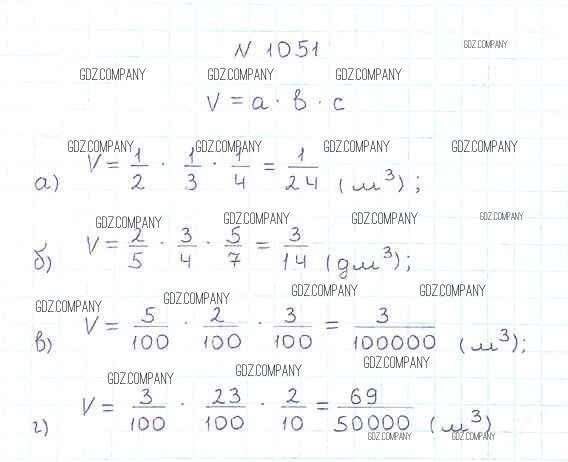 N 1051
GDZ.COMPANY
GDZ.COMPANY GDZ.COMPANY GDZ.COMPANY
V = a · b · c
GDZ.COMPANY GDZ.COMPANY GDZ.COMPANY GDZ.COMPANY
а) V = 1/2 · 1/3 · 1/4 = 1/24 (м³);
GDZ.COMPANY GDZ.COMPANY GDZ.COMPANY GDZ.COMPANY
б) V = 2/5 · 3/4 · 5/7 = 3/14 (дм³);
GDZ.COMPANY GDZ.COMPANY GDZ.COMPANY GDZ.COMPANY
в) V = 5/100 · 2/100 · 3/100 = 3/100000 (м³);
GDZ.COMPANY GDZ.COMPANY GDZ.COMPANY
г) V = 3/100 · 23/100 · 2/10 = 69/50000 (м³)
GDZ.COMPANY GDZ.COMPANY